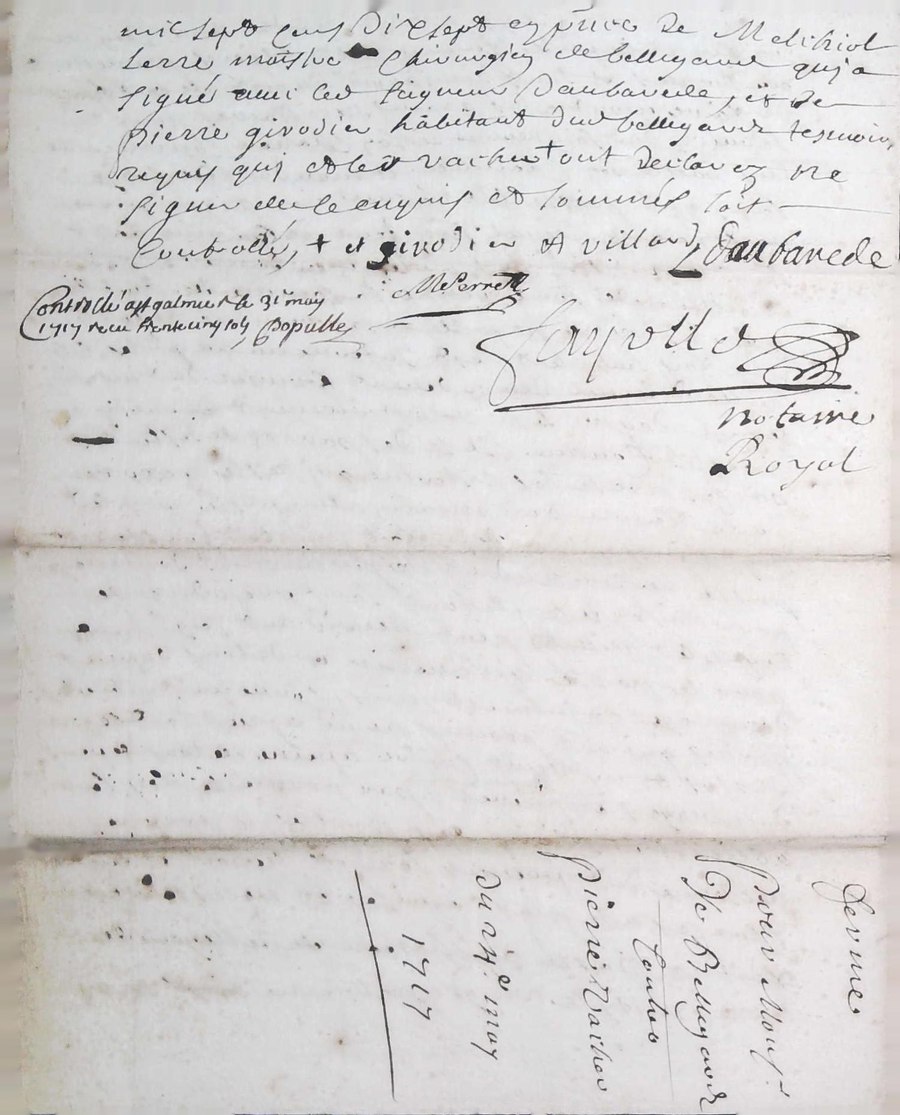 mil sept cens dix sept en pnce de Melchiol
Serre maistre Chirurgien de bellegarde quj a
signé avec led seigneur Daubarede, et de
pierre girodier habitant dud bellegarde tesmoin
requis quj et led vacher + ont declarez ne
signer de ce enquis et sommés soit
Controllé, + et girodier
et villard Daubarede
MSerre
Controllé a st galmier le 31e may
1717 receu trente cinq sols Populle
Fayolle
notaire
Royal
Pour Monsr
De Bellegarde
Contre
Pierre Vacher
Du 24e may
1717